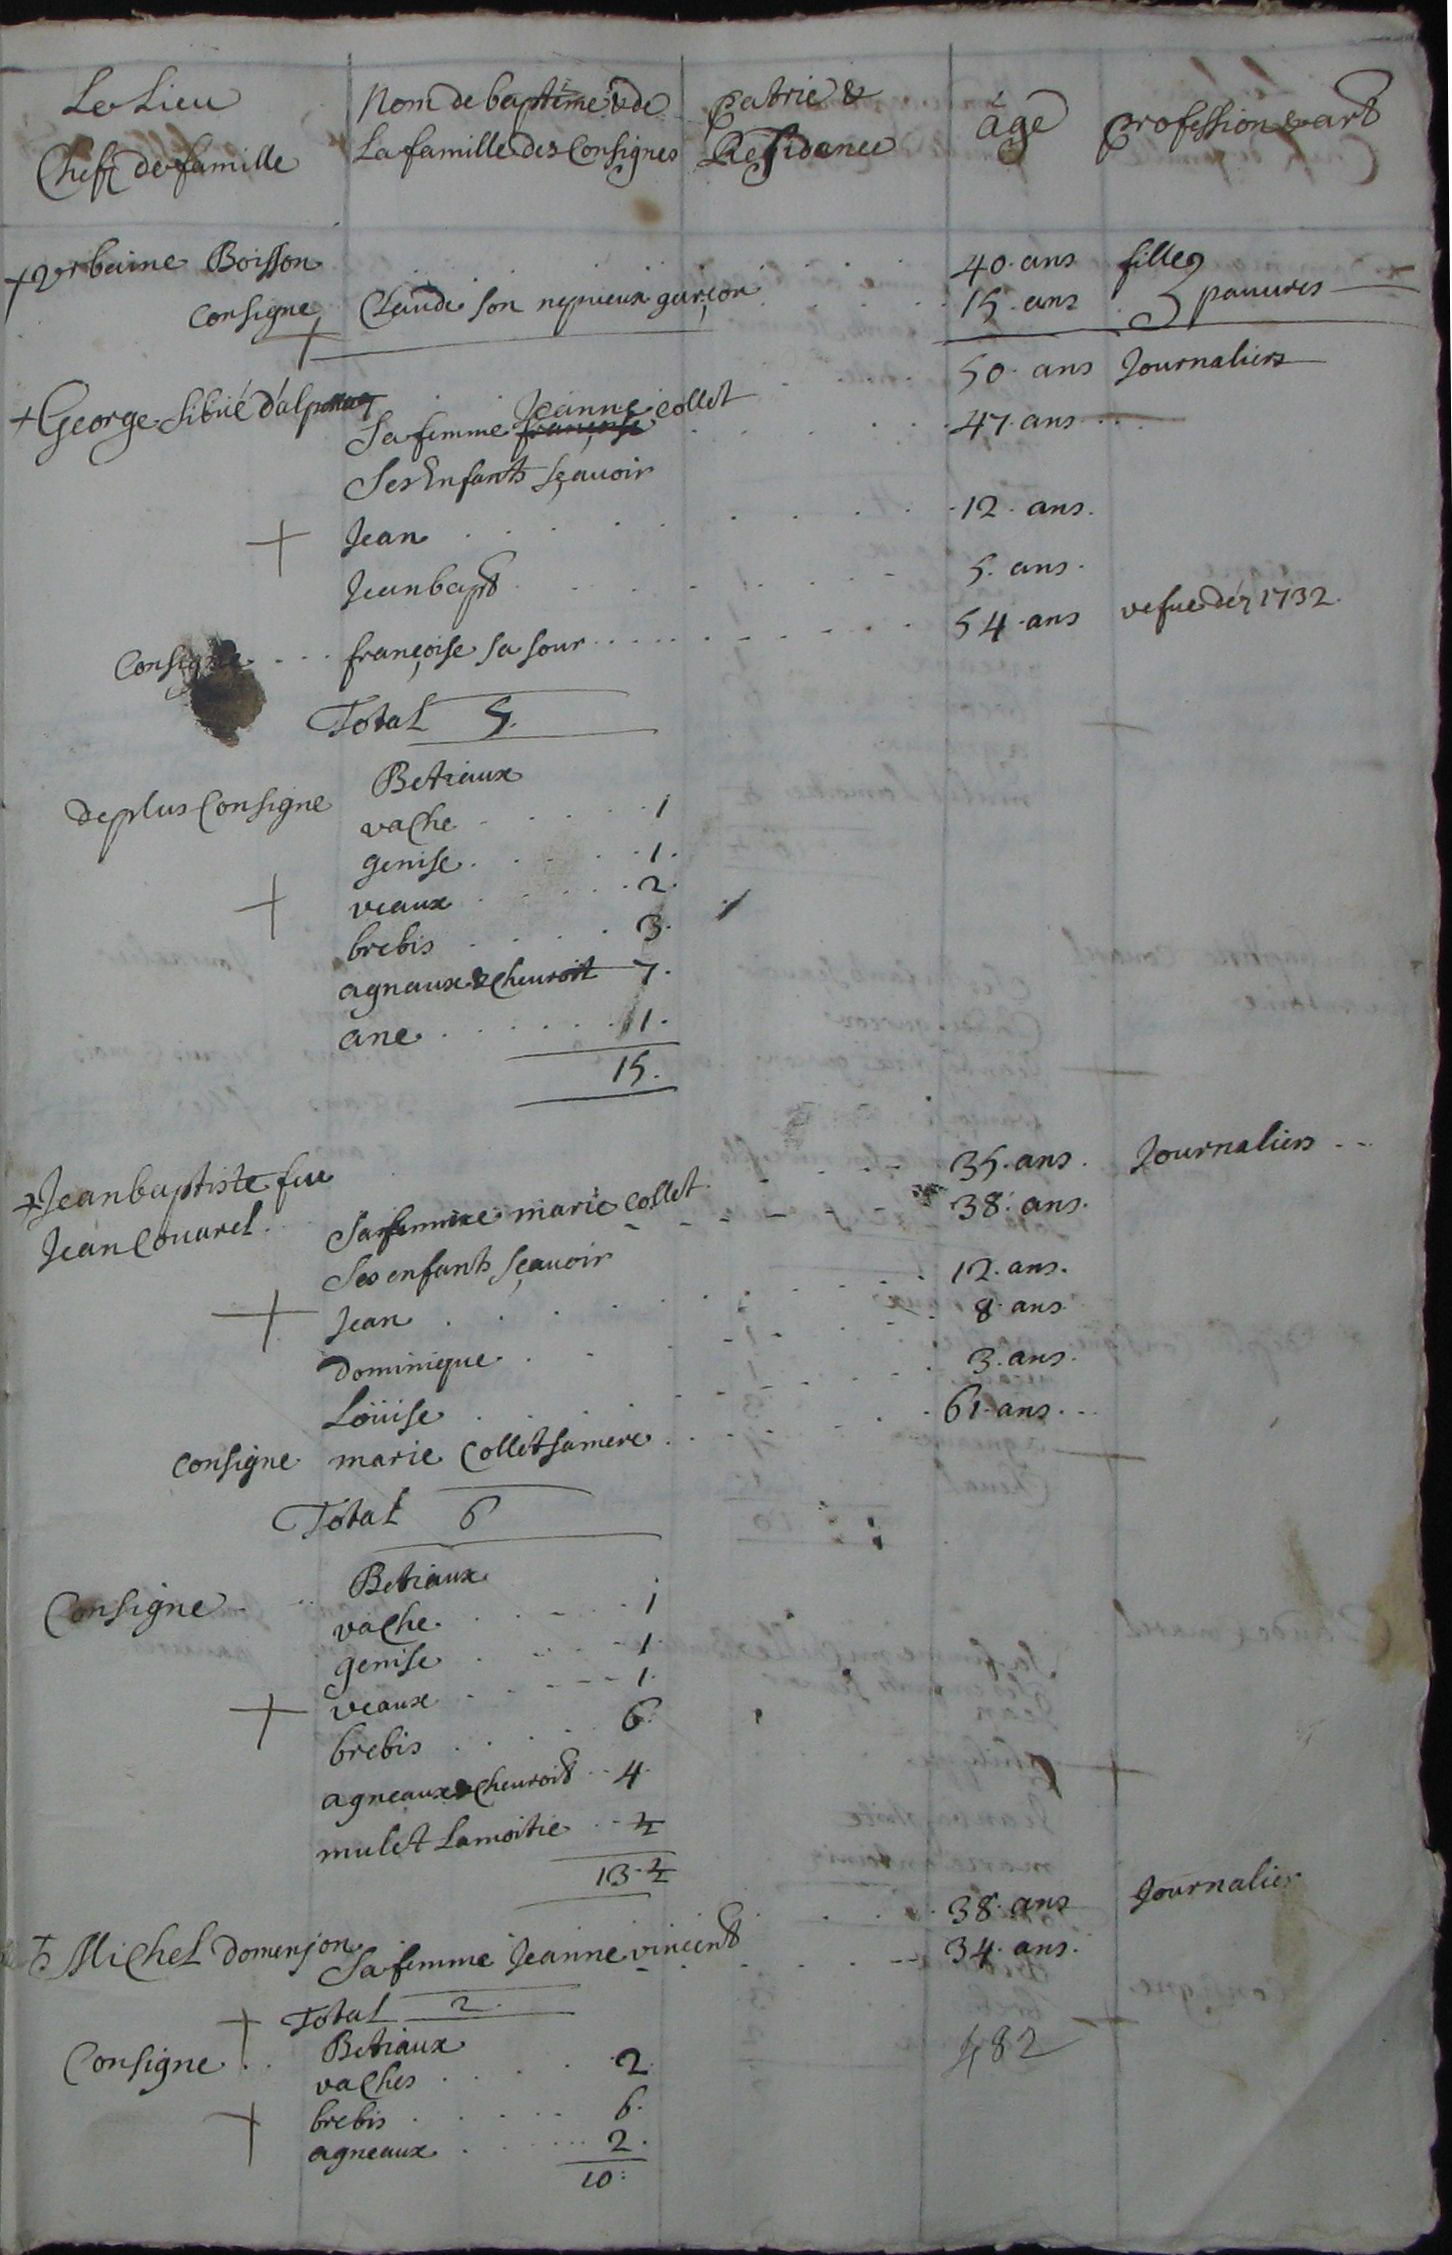 Le Lieu
Chefz de famille
Nom de baptéme & de
La famille des Consignes
patrie &
Residance
âge
profession & art
+ vrbaine Boisson 40. ans filles
Consigne Claude son nepueux garçon 15. ans pauures
+ George Sibué 50. ans Journaliers
Sa femme Jeanne françoise collet 47. ans
Ses Enfants sçauoir
+ Jean 12. ans.
Jean bapt 5. ans.
Consigne françoise sa sour 54. ans vefue déz 1732.
Total 5.
Betiaux
de plus Consigne
vache 1
genise 1.
+ veaux 2.
brebis 3.
agneaux & cheuroit 7.
ane 1.
15.
+ Jean baptiste feu 35. ans. Journaliers
Jean Couarel.
Sa femme marie collet 38. ans.
Ses enfants sçauoir
+ Jean 12. ans.
Dominique 8. ans
Loüise 3. ans.
Consigne marie Collet sa mere 61. ans.
Total 6
Betiaux
Consigne
vache 1
genise 1.
+ veaux 1.
brebis 6.
agneaux & cheuroit 4.
mulet La moitie ½
13. ½
+ Michel Domenjon 38. ans Journalier
Sa femme Jeanne vincent 34. ans.
+ Total 2.
Betiaux
Consigne
vaches 2.
+ brebis 6.
agneaux 2.
10.
482